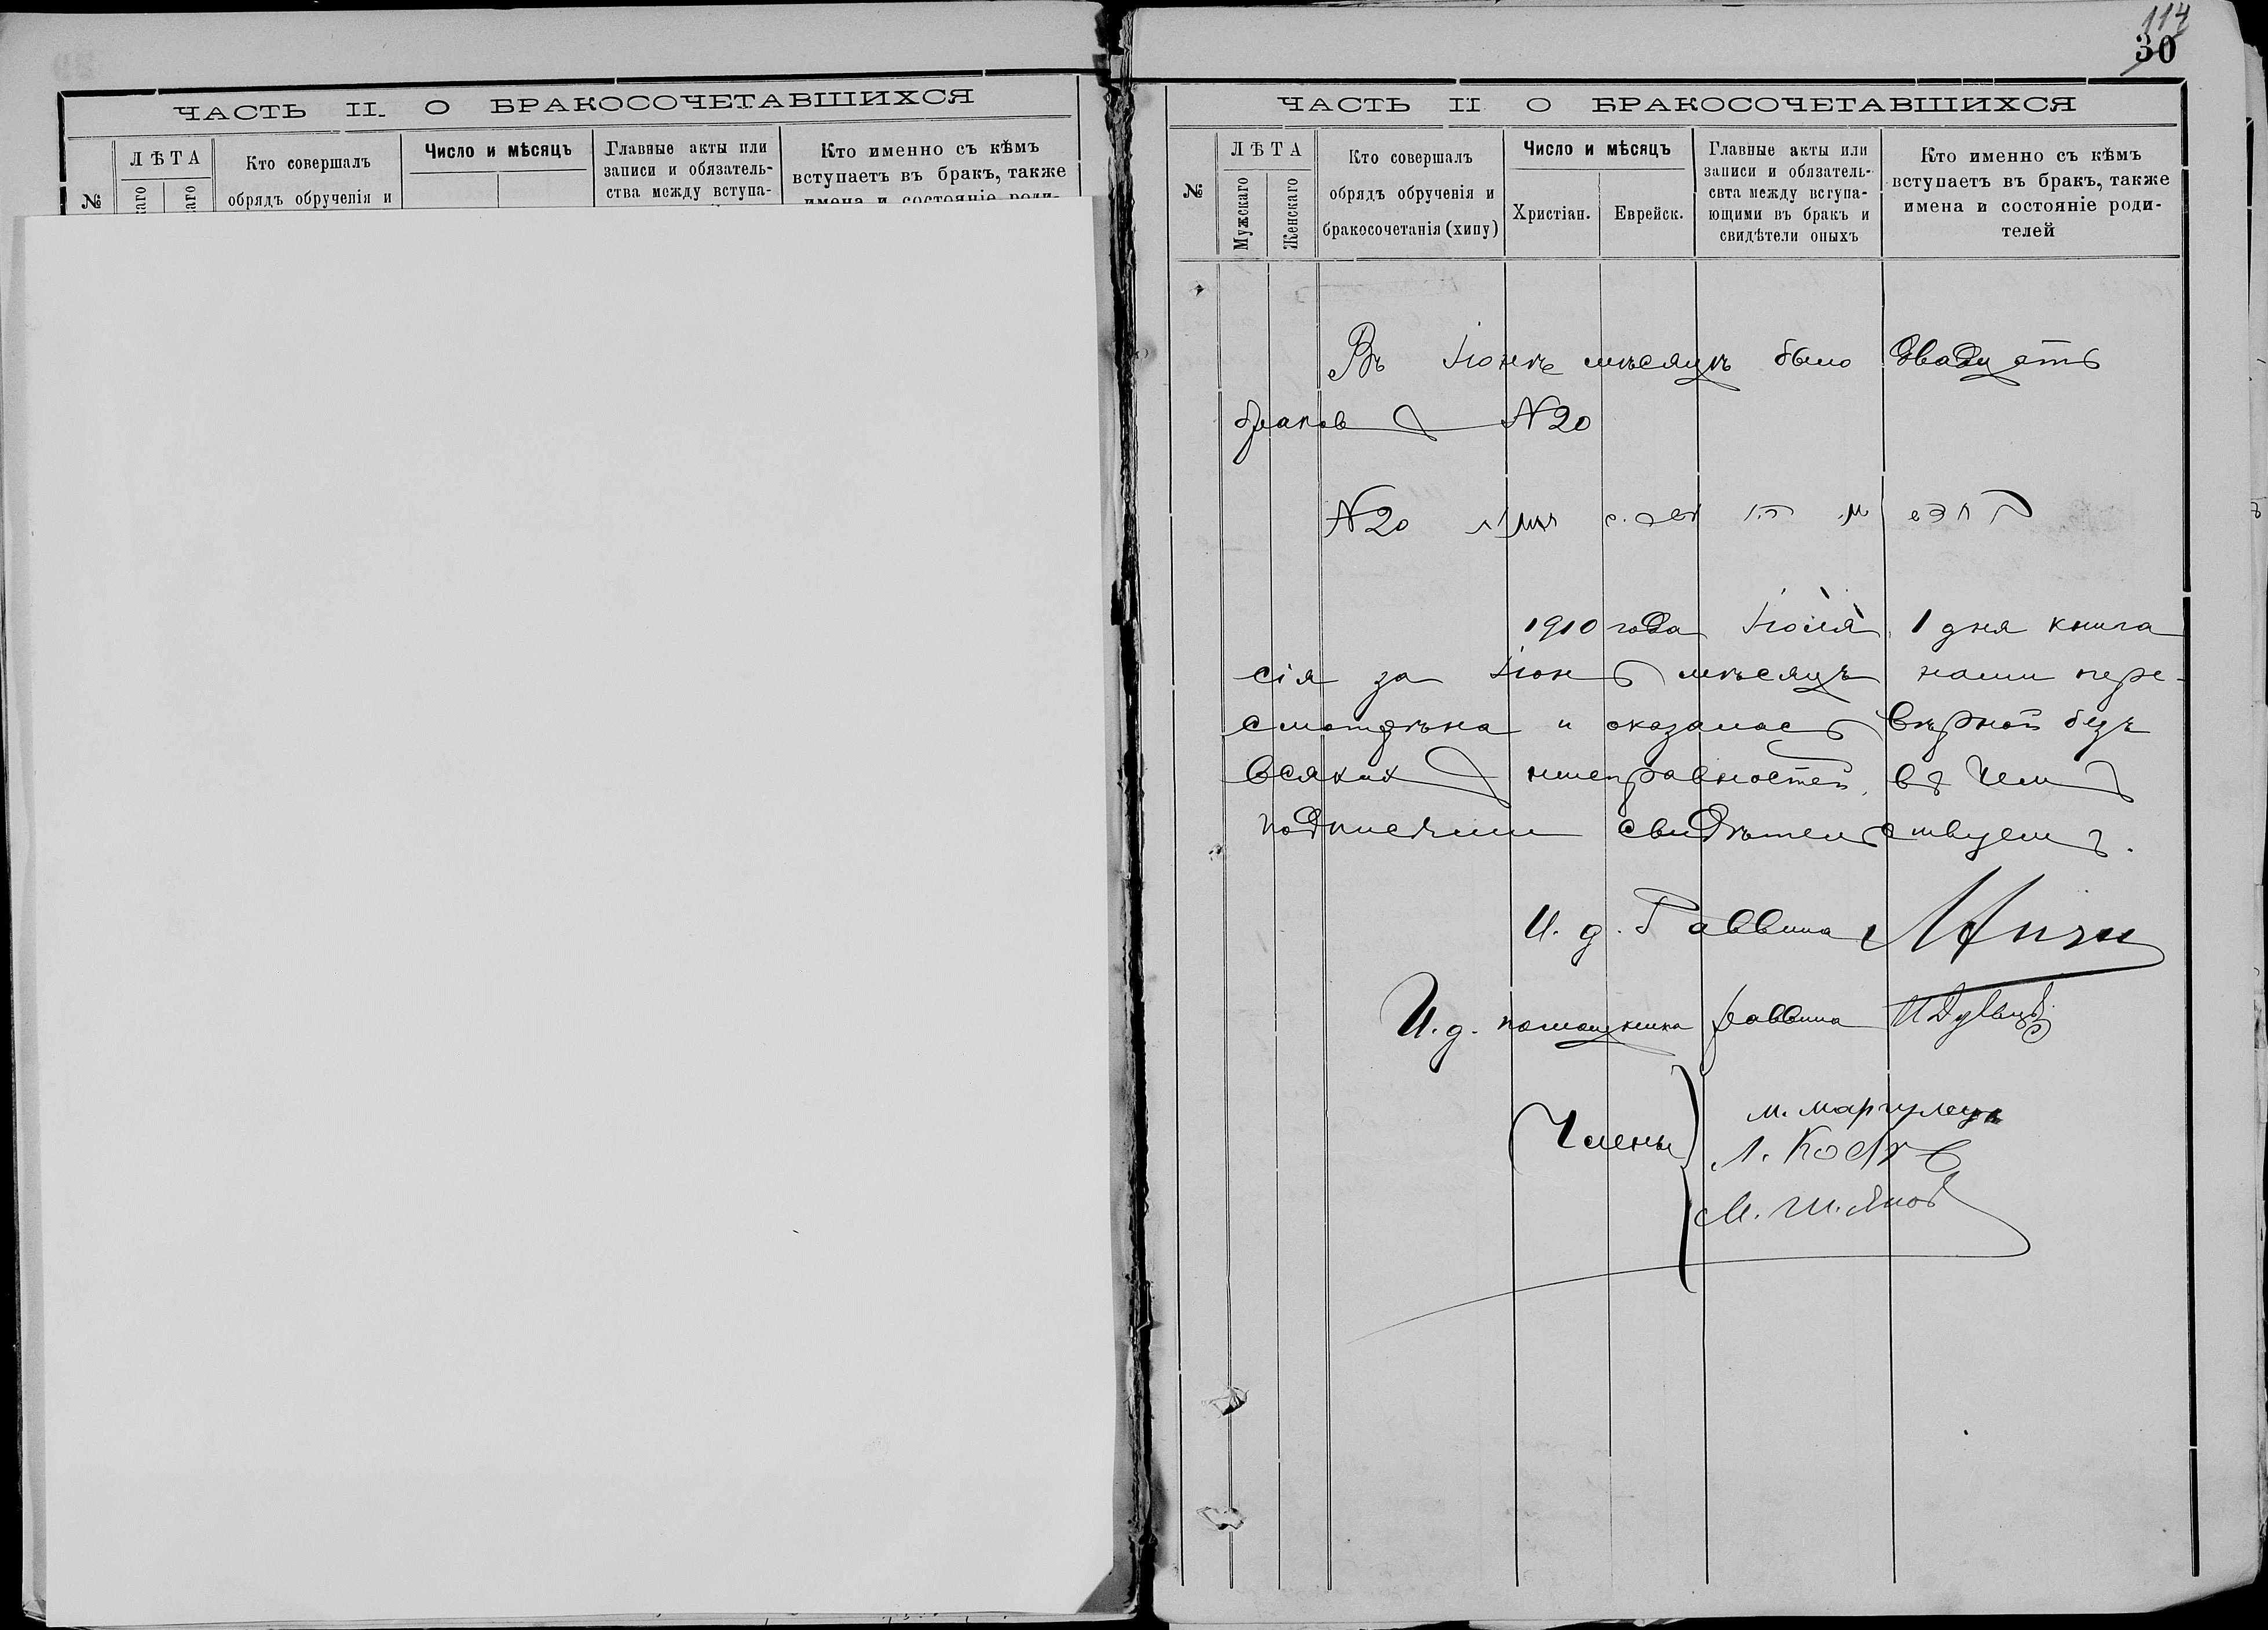 ЧАСТЬ II. О БРАКОСОЧЕТАВШИХСЯ
№
ЛѢТА
каго
каго
Кто совершалъ
обрядъ обрученія и
Число и мѣсяцъ
Главные акты или
записи и обязатель-
ства между вступа-
Кто именно съ кѣмъ
вступаетъ въ бракъ, также
имена и состояніе роди-
114
30
ЧАСТЬ II О БРАКОСОЧЕТАВШИХСЯ
№
ЛѢТА
Мужскаго
Женскаго
Кто совершалъ
обрядъ обрученія и
бракосочетанія (хипу)
Число и мѣсяцъ
Христіан.
Еврейск.
Главные акты или
записи и обязатель-
свта между вступа-
ющими въ бракъ и
свидѣтели оныхъ
Кто именно съ кѣмъ
вступаетъ въ бракъ, также
имена и состояніе роди-
телей
Въ Іюнѣ мѣсяцѣ было двадцать
браков N 20
N 20
1910 года Іюля 1 дня книга
сія за Іюнь мѣсяцъ нами пере-
смотрѣна и оказалась вѣрной безъ
всяких неисправностей, въ чемъ
подписями свидѣтельствуемъ.
И. д. Раввина
И. д. помощника раввина
Члены
М. Маргулецъ
Л.
М. Ш.